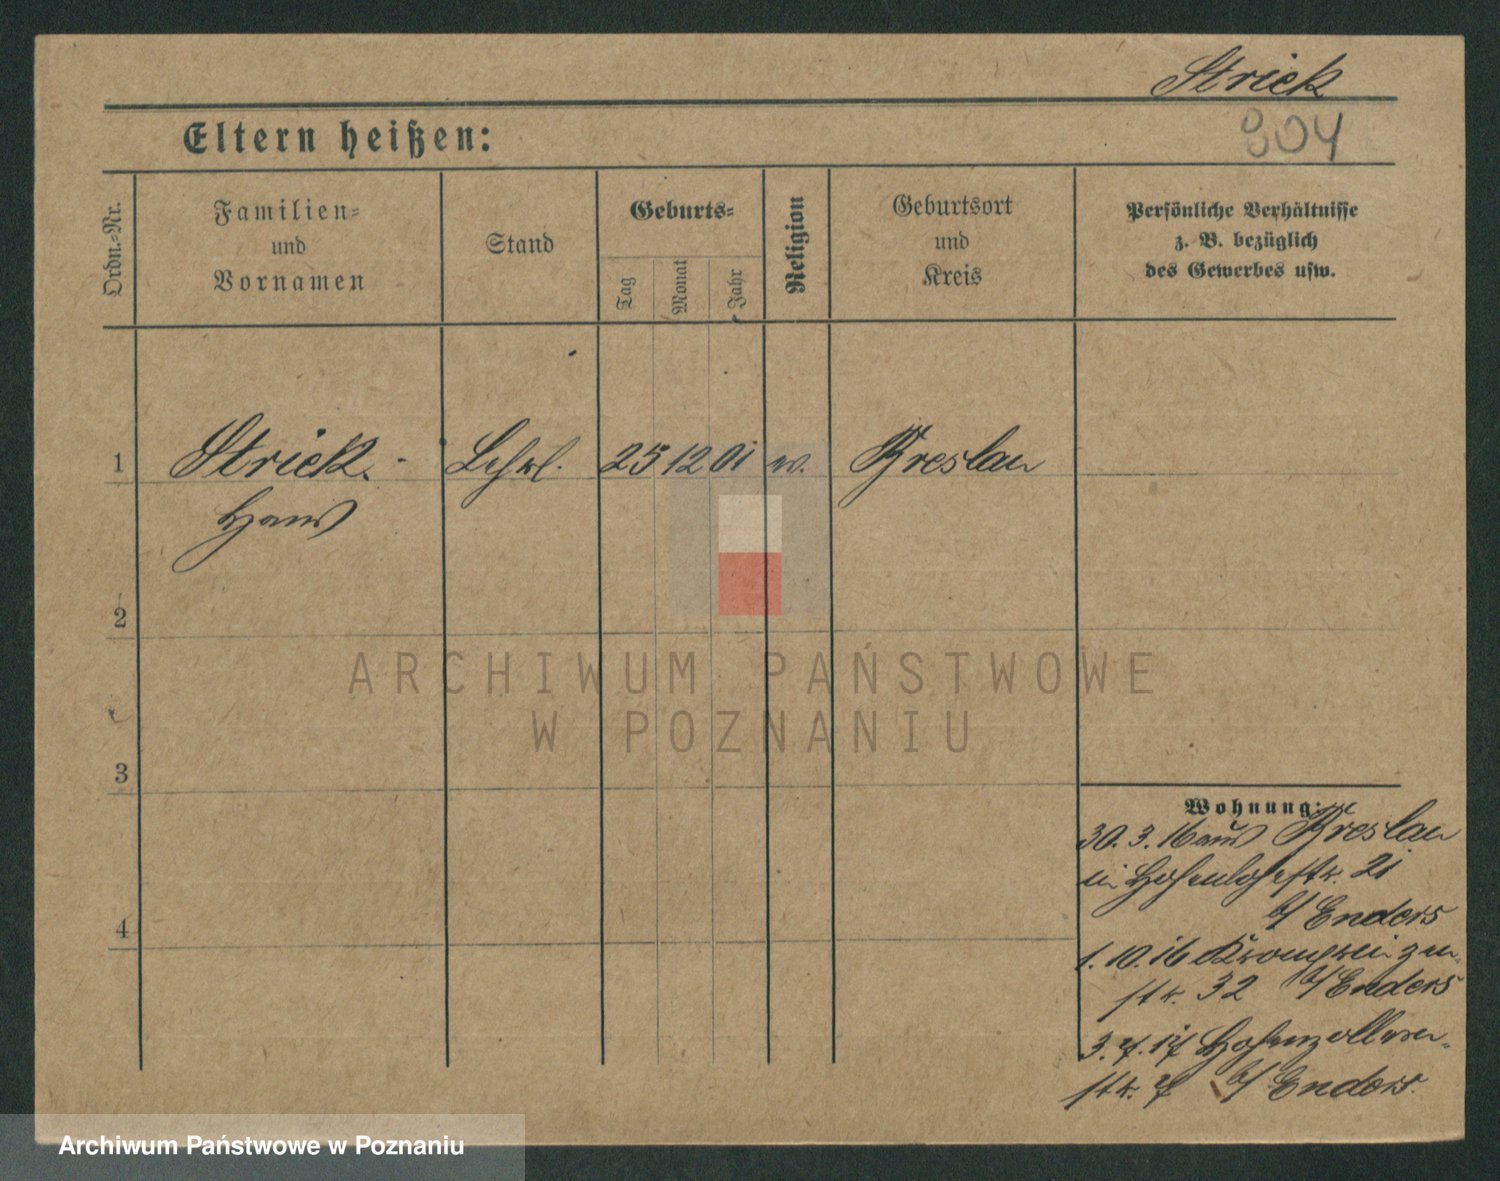 Strick
304
Eltern heißen:
Ordn.-Nr.
Familien-
und
Vornamen
Stand
Geburts-
Tag
Monat
Jahr
Religion
Geburtsort
und
Kreis
Persönliche Verhältnisse
z. B. bezüglich
des Gewerbes usw.
1 Strick. Lehrl. 25 12 01 Breslau
Hans
2
3
4
Wohnung:
30. 3. 16 aus Breslau
in Hohenlohestr. 21
b/ Enders
1. 10. 16 Kronprinzen-
str. 32 b/ Enders
3. 7. 17 Hohenzollern-
str. 7 b/ Enders.
ARCHIWUM PAŃSTWOWE
W POZNANIU
Archiwum Państwowe w Poznaniu